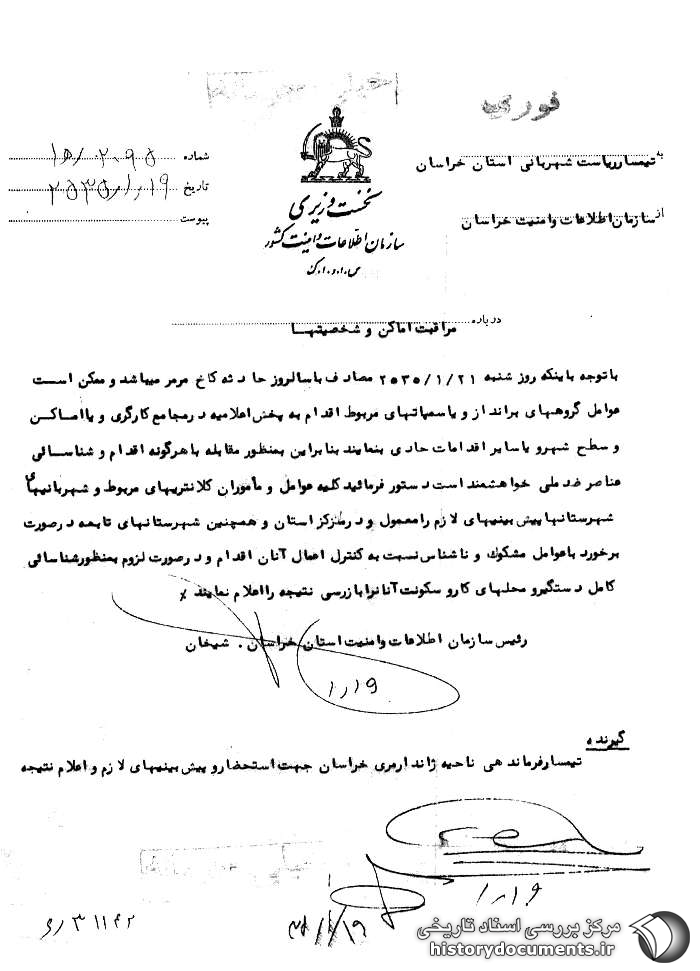 خیلی محرمانه
فوری
به تیمسار ریاست شهربانی استان خراسان
از سازمان اطلاعات و امنیت خراسان
نخست وزیری
سازمان اطلاعات و امنیت کشور
س.ا.و.ا.ک
شماره ۲۰۹۵ /۱۵
تاریخ ۲۵۳۵/۱/۱۹
پیوست
درباره مراقبت اماکن و شخصیتها
با توجه باینکه روز شنبه ۲۵۳۵/۱/۲۱ مصادف با سالروز حادثه کاخ مرمر میباشد و ممکن است
عوامل گروههای برانداز و یا سمپاتهای مربوط اقدام به پخش اعلامیه در مجامع کارگری و یا اماکن
و سطح شهر و یا سایر اقدامات حادی بنمایند بنابراین بمنظور مقابله با هرگونه اقدام و شناسائی
عناصر ضد ملی خواهشمند است دستور فرمائید کلیه عوامل و مأموران کلانتریهای مربوط و شهربانیهای
شهرستانها پیش بینیهای لازم را معمول و در مرکز استان و همچنین شهرستانهای تابعه در صورت
برخورد با عوامل مشکوک و ناشناس نسبت به کنترل اعمال آنان اقدام و در صورت لزوم بمنظور شناسائی
کامل دستگیر و محلهای کار و سکونت آنانرا بازرسی نتیجه را اعلام نمایند x
رئیس سازمان اطلاعات و امنیت استان خراسان . شیخان
۱/۱۹
گیرنده
تیمسار فرماندهی ناحیه ژاندارمری خراسان جهت استحضار و پیش بینیهای لازم و اعلام نتیجه
۱/۱۹
مرکز بررسی اسناد تاریخی
historydocuments.ir